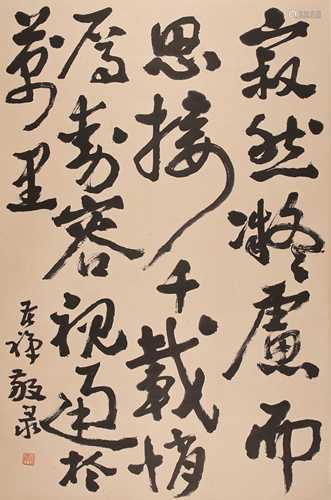 寂然凝慮而
思接千載悄
焉動容視通於
萬里
禅敬录